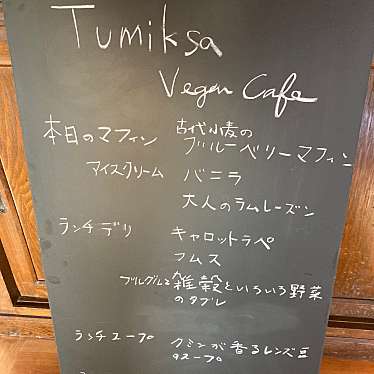 Tumiksa
Vegan Cafe
本日のマフィン 古代小麦の
ブルーベリーマフィン
アイスクリーム バニラ
大人のラムレーズン
ランチデリ キャロットラペ
フムス
ブルグルと雑穀といろいろ野菜
のタブレ
ランチスープ クミンが香るレンズ豆
のスープ